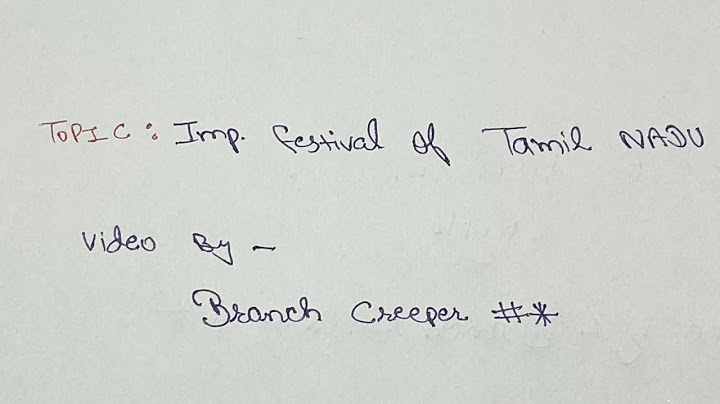 TOPIC : Imp. festival of Tamil NADU
Video By -
Branch Creeper #*